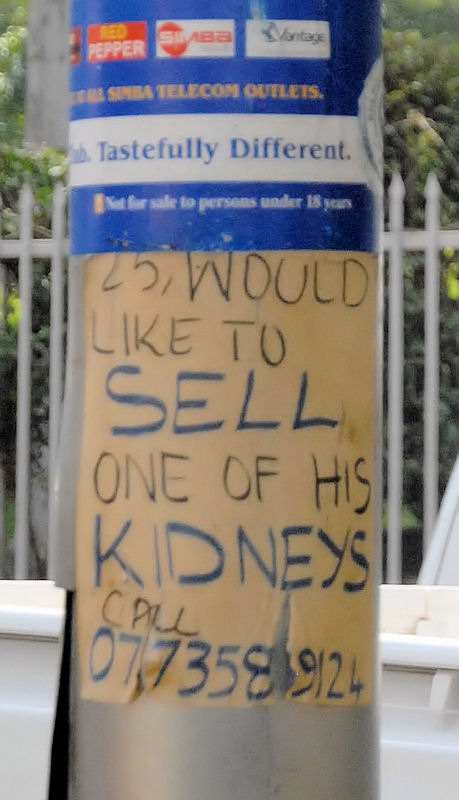 RED
PEPPER
SIMBA
Vantage
AT ALL SIMBA TELECOM OUTLETS.
Tastefully Different.
Not for sale to persons under 18 years
25, WOULD
LIKE TO
SELL
ONE OF HIS
KIDNEYS
CALL